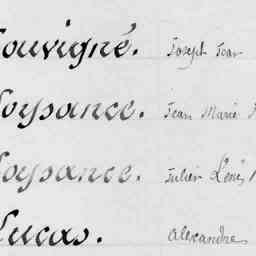 ouvigné. Joseph Jean
oysance. Jean Marie
oysance. Julien René
Lucas. Alexandre